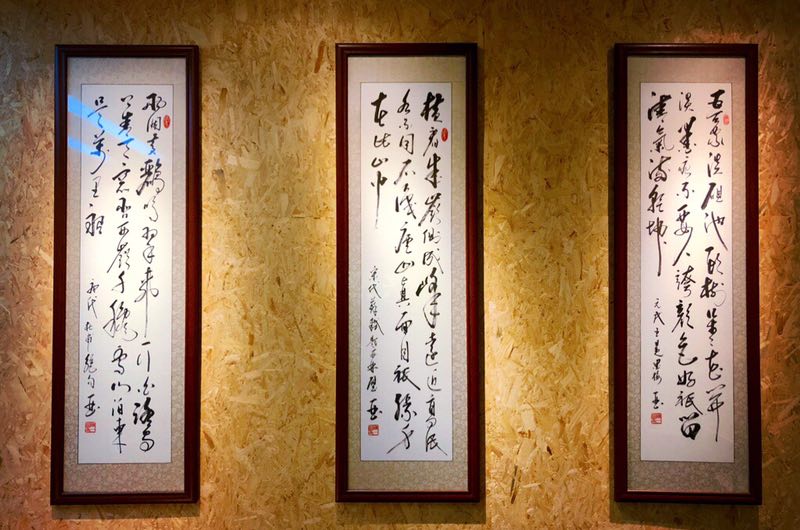 吾家洗硯池頭樹朵朵花開
淡墨痕不要人誇顏色好祇留
清氣滿乾坤
元代王冕墨梅
橫看成嶺側成峰遠近高低
各不同不識廬山真面目祇緣身
在此山中
宋代蘇軾題西林壁
兩個黃鸝鳴翠柳一行白鷺
上青天窗含西嶺千秋雪門泊東
吳萬里船
唐代杜甫絕句